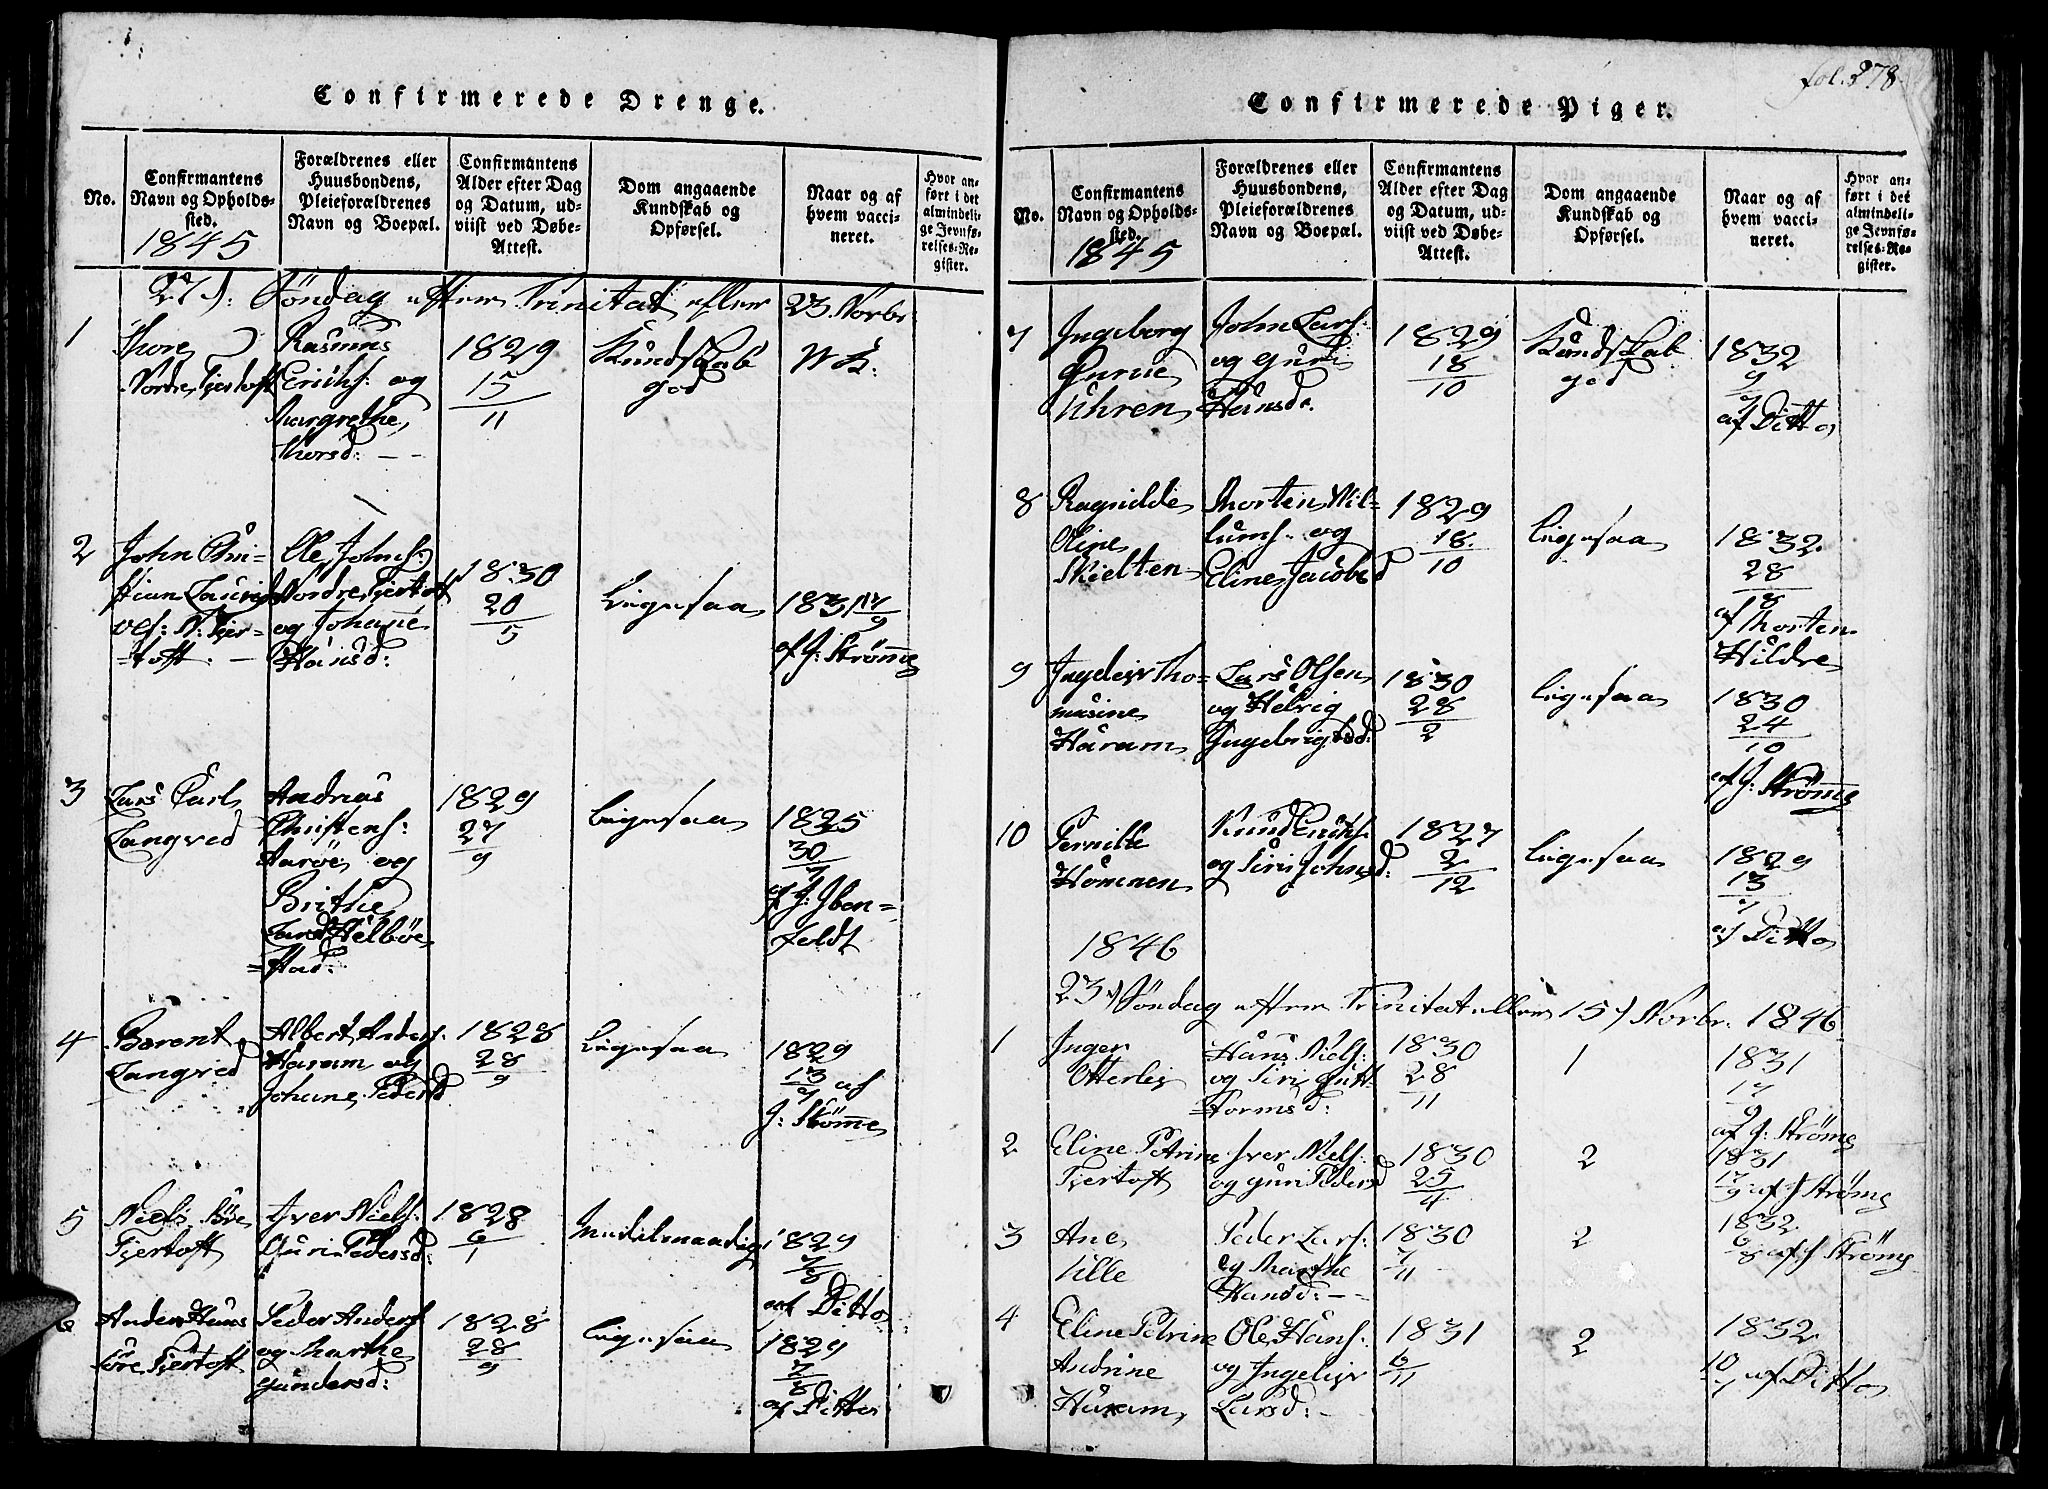 fol. 278
Confirmerede Drenge.
No.
Confirmantens
Navn og Opholds-
sted.
1845
Forældrenes eller
Huusbondens,
Pleieforældrenes
Navn og Boepæl.
Confirmantens
Alder efter Dag
og Datum, ud-
viist ved Døbe-
Attest.
Dom angaaende
Kundskab og
Opførsel.
Naar og af
hvem vacci-
neret.
Hvor an-
ført i det
almindeli-
ge Jevnfø-
relses-Re-
gister.
27de Søndag efter Trinitat eller 23 Novbr
1
Thore
Nordre Fjertoft
Rasmus
Erichs: og
Margrethe
Thorsd:
1829
15
11
Kundskab
god
2
John Chri-
stian Laurids
Ols: N: Fjer-
=toft.
Ole Johns:
Nordre Fjertoft
og Johanne
Hansd:
1830
20
5
Ligesaa
1831 17
9
af J: Strømme
3
Lars Carl
Langved
Andreas
Christens:
Aarøe og
Brithe
Larsd Helbøe
=stad:
1829
27
9
Ligesaa
1825
30
af J: Iben=
feldt
4
Berent
Langved
Albert Anders:
Haram og
Johane Pedersd
1828
28
9
Ligesaa
1829
13 af
7
J: Strømme
5
Niels Søre
Fjertoft
Iver Niels:
Guri Pedersd:
1828
6
1
Maadelig
1829
7
8
af Ditto
6
Anders Hans
Søre Fjertoft
Peder Anders
og Marthe
Gundersd:
1828
28
9
Ligesaa
1829
7
8
af Ditto
Confirmerede Piger.
No.
Confirmantens
Navn og Opholds-
sted.
1845
Forældrenes eller
Huusbondens,
Pleieforældrenes
Navn og Boepæl.
Confirmantens
Alder efter Dag
og Datum, ud-
viist ved Døbe-
Attest.
Dom angaaende
Kundskab og
Opførsel.
Naar og af
hvem vacci-
neret.
Hvor an-
ført i det
almindeli-
ge Jevnfø-
relses-Re-
gister.
7
Ingeborg
Gurine
Uhren
John Lars:
og Guri
Hansd.
1829
18
10
Kundskab
god
1832
9
7
af Ditto
8
Ragnilde
Oline
Skjelten
Morten Wil-
lums. og
Eline Jacobsd
1829
18
10
Ligesaa
1832
28
8
af Morten
Hildre
9
Ingeleiv Tho=
masine
Haram
Lars Olsen
og Helvig
Ingebrigtsd:
1830
28
2
Ligesaa
1830
24
10
af J: Strømme
10
Pernille
Hommen
Knud Erichs.
og Siri Johnsd:
1827
2
12
Ligesaa
1829
13
7
af Ditto
1846
23de Søndag efter Trinitat eller 15de Novbr. 1846
1
Inger
Otterlei
Hans Niels:
og Siri Gutt-
=ormsd:
1830
28
11
1
1831
17
9
af J: Strømme
2
Eline Petrine
Fjertoft
Iver Niels:
og Guri Pedersd
1830
25
4
2
1831
17
9 af J Strømme
3
Ane
Ulle
Peder Lars:
og Marthe
Hansd:
1830
7
11
2
1832
6
8 af J Strømme
4
Eline Petrine
Andrine
Haram
Ole Hans:
og Ingeleiv
Larsd:
1831
6
11
2
1832
10
7 af Ditto